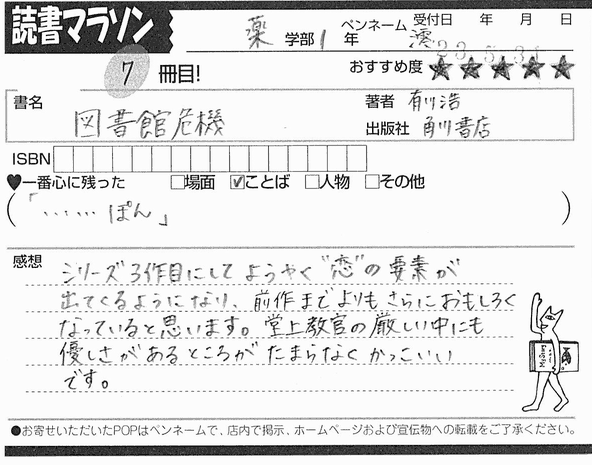 読書マラソン
薬 学部 1 年 ペンネーム 澪 受付日 年 月 日
23 5 31
7 冊目! おすすめ度 ★★★★★
書名 図書館危機
著者 有川浩
出版社 角川書店
ISBN
♥一番心に残った □場面 ☑ことば □人物 □その他
(「……ぽん」)
感想
シリーズ3作目にしてようやく"恋"の要素が
出てくるようになり、前作までよりもさらにおもしろく
なっていると思います。堂上教官の厳しい中にも
優しさがあるところがたまらなくかっこいい
です。
●お寄せいただいたPOPはペンネームで、店内で掲示、ホームページおよび宣伝物への転載をご了承ください。